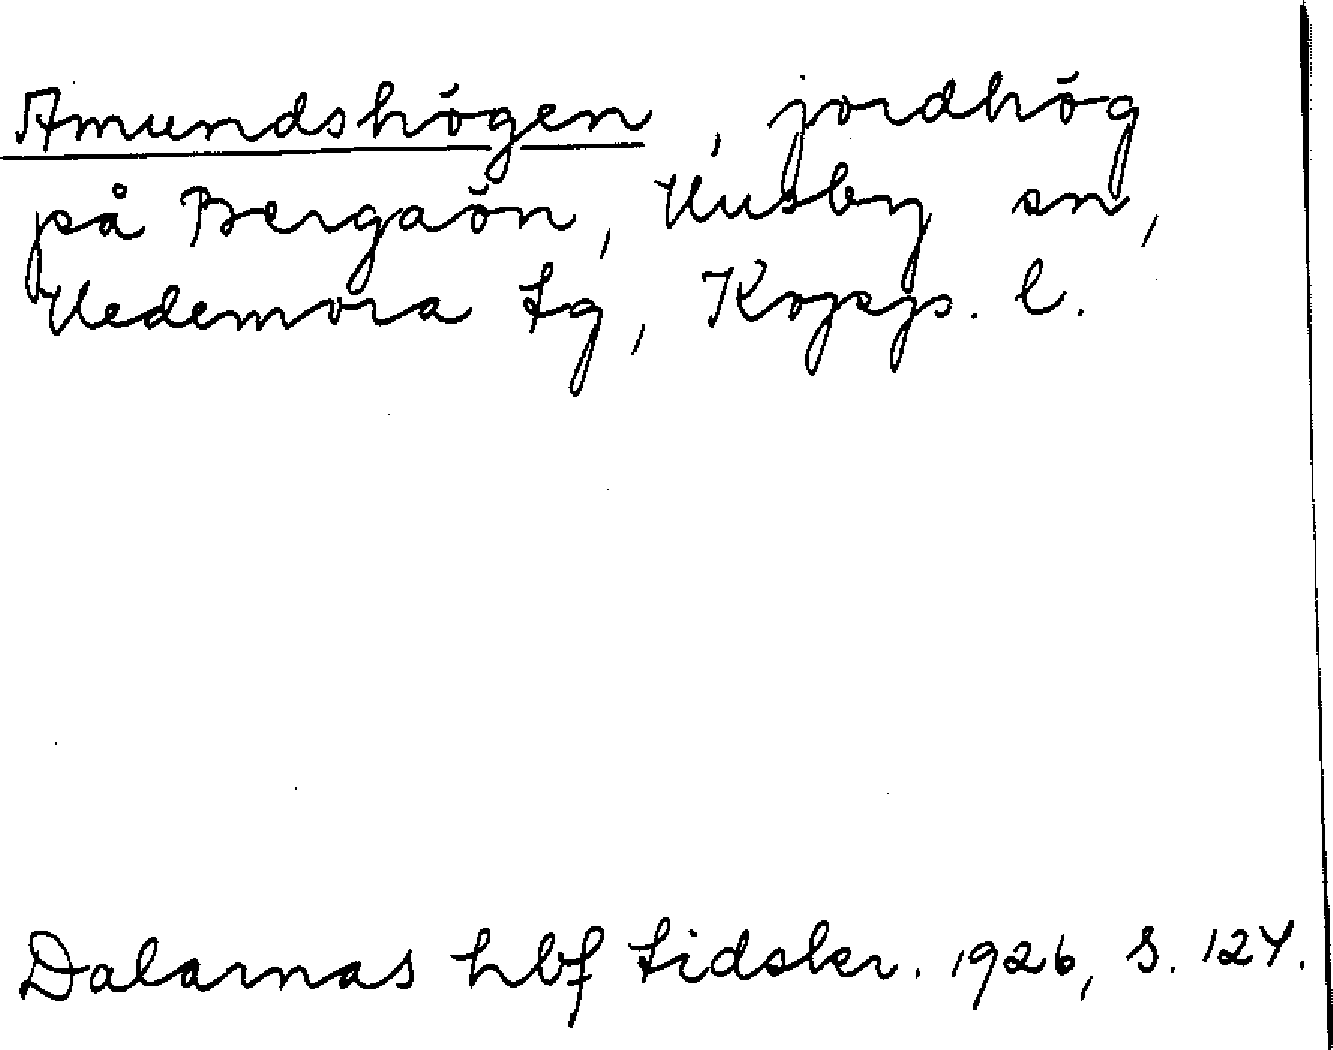 Amundshögen, jordhög
på Bergaön, Husby sn,
Hedemora tg, Kopps. l.
Dalarnas hbf tidskr. 1926, s. 124.